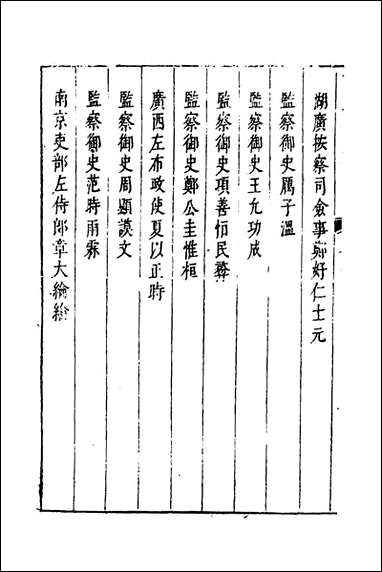 湖廣按察司僉事鄭好仁士元
監察御史厲子溫
監察御史王允功成
監察御史項善恒民彝
監察御史鄭公圭惟桓
廣西左布政使夏以正時
監察御史周顗謨文
監察御史范時雨霖
南京吏部左侍郎章大綸綸